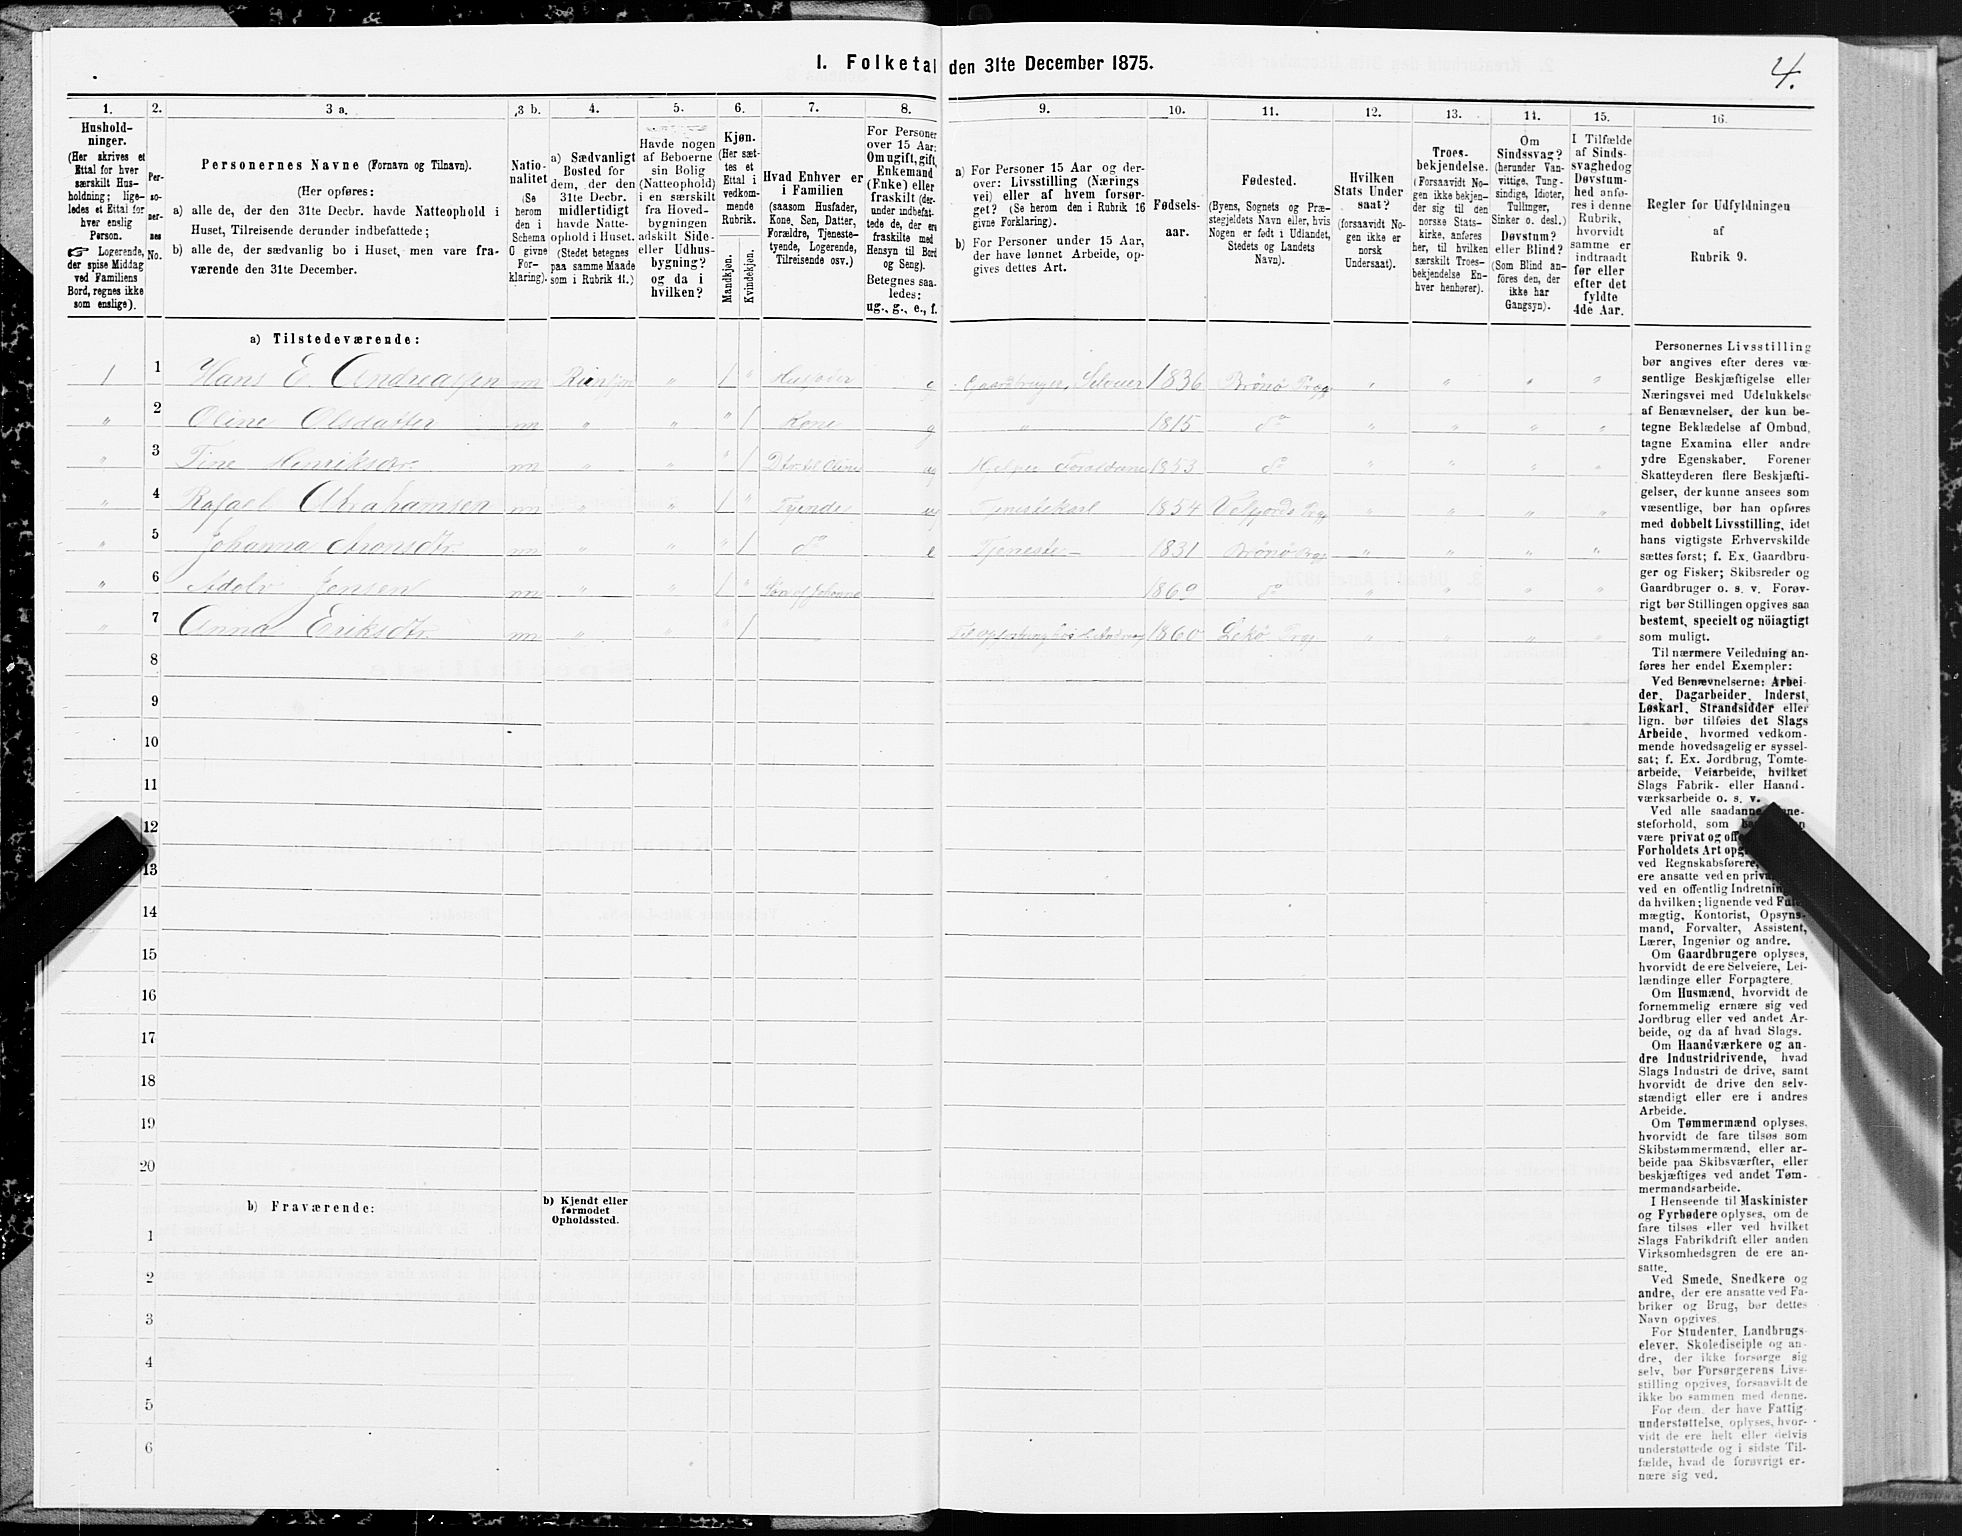 I. Folketal den 31te December 1875.
4.
1.
Hushold-
ninger.
(Her skrives et
Ettal for hver
særskilt Hus-
holdning; lige-
ledes et Ettal for
hver enslig
Person.
☞ Logerende,
der spise Middag
ved Familiens
Bord, regnes ikke
som enslige).
2.
Per-
so-
ner-
nes
No.
3 a.
Personernes Navne (Fornavn og Tilnavn).
(Her opføres:
a) alle de, der den 31te Decbr. havde Natteophold i
Huset, Tilreisende derunder indbefattede;
b) alle de, der sædvanlig bo i Huset, men vare fra-
værende den 31te December.
3 b.
Natio-
nalitet
(Se
herom
den i
Schema
O givne
For-
klaring).
4.
a) Sædvanligt
Bosted for
dem, der den
31te Decbr.
midlertidigt
havde Natte-
ophold i Huset.
(Stedet betegnes
paa samme Maade
som i Rubrik 11.)
5.
Havde nogen
af Beboerne
sin Bolig
(Natteophold)
i en særskilt
fra Hoved-
bygningen
adskilt Side-
eller Udhus-
bygning?
og da i
hvilken?
6.
Kjøn.
(Her sæt-
tes et
Ettal i
vedkom-
mende
Rubrik.
Mandkjøn.
Kvindekjøn.
7.
Hvad Enhver er
i Familien
(saasom Husfader,
Kone, Søn, Datter,
Forældre, Tjeneste-
tyende, Logerende,
Tilreisende osv.)
8.
For Personer
over 15 Aar:
Om ugift, gift,
Enkemand
(Enke) eller
fraskilt (der-
under indbefat-
tede de, der ere
fraskilte med
Hensyn til Bord
og Seng).
Betegnes saa-
ledes:
ug., g., e., f.
9.
a) For Personer 15 Aar og der-
over: Livsstilling (Nærings
vei) eller af hvem forsør-
get? (Se herom den i Rubrik 16
givne Forklaring).
b) For Personer under 15 Aar,
der have lønnet Arbeide, op-
gives dettes Art.
10.
Fødsels-
aar.
11.
Fødested.
(Byens, Sognets og Præ-
stegjeldets Navn eller, hvis
Nogen er født i Udlandet,
Stedets og Landets
Navn).
12.
Hvilken
Stats Under
saat?
(forsaavidt No-
gen ikke er
norsk
Undersaat).
13.
Troes-
bekjendelse.
(Forsaavidt No-
gen ikke bekjen-
der sig til den
norske Stats-
kirke, anføres
her, til hvilken
særskilt Troes-
bekjendelse En-
hver henhører).
14.
Om
Sindssvag?
(herunder Van-
vittige, Tung-
sindige, Idioter,
Tullinger,
Sinker o. desl.)
Døvstum?
eller Blind?
(Som Blind an-
føres den, der
ikke har
Gangsyn).
15.
I Tilfælde
af Sinds-
svaghed og
Døvstum-
hed anfø-
res i denne
Rubrik,
hvorvidt
samme er
indtraadt
før eller
efter det
fyldte
4de Aar.
16.
Regler for Udfyldningen
af
Rubrik 9.
a) Tilstedeværende:
1 1 Hans E. Andreassen nn " 1 " Husfader Gaardbruger, Selveier 1836 Brønø Prgj " " " "
" 2 Oline Olsdatter nn " " " 1 Kone g " 1815 do " " " "
" 3 Tine Henriksdtr. nn " " " 1 Dtr. til Oline ug Hjelper Forældrene 1853 do " " " "
" 4 Rafael Abrahamsen nn " " 1 " Tyende ug Tjenestekarl 1854 Velfjords Prgj " " " "
" 5 Johanna Aronsdtr. nn " " " 1 do e Tjeneste- 1831 Brønø Prgj " " " "
" 6 Adolv Jensen nn " " 1 " Søn af Johanna 1869 do " " " "
" 7 Anna Eriksdtr. nn " " " 1 Til Opfostring hos 1860 Lekø Prgj " " " "
8
9
10
11
12
13
14
15
16
17
18
19
20
b) Fraværende:
b) Kjendt eller
formodet
Opholdssted.
1
2
3
4
5
6
Personernes Livsstilling
bør angives efter deres væ-
sentlige Beskjæftigelse eller
Næringsvei med Udelukkelse
af Benævnelser, der kun be-
tegne Beklædelse af Ombud,
tagne Examina eller andre
ydre Egenskaber. Forener
Skatteyderen flere Beskjæfti-
gelser, der kunne ansees som
væsentlige, bør han opføres
med dobbelt Livsstilling, idet
hans vigtigste Erhvervskilde
sættes først; f. Ex. Gaardbru-
ger og Fisker; Skibsreder og
Gaardbruger o. s. v. Forøv-
rigt bør Stillingen opgives saa
bestemt, specielt og nöiagtigt
som muligt.
Til nærmere Veiledning an-
føres her endel Exempler:
Ved Benævnelserne: Arbei-
der, Dagarbeider, Inderst,
Løskarl, Strandsidder eller
lign. bør tilføies det Slags
Arbeide, hvormed vedkom-
mende hovedsagelig er syssel-
sat; f. Ex. Jordbrug, Tomte-
arbeide, Veiarbeide, hvilket
Slags Fabrik- eller Haand-
værksarbeide o. s. v.
Ved alle saadanne
steforhold, som
være privat og
Forholdets Art
ved Regnskabsførere,
ere ansatte ved en
ved en offentlig Indretning
da hvilken; lignende ved
mægtig, Kontorist, Opsyns-
mand, Forvalter, Assistent,
Lærer, Ingeniør og andre.
Om Gaardbrugere oplyses,
hvorvidt de ere Selveiere, Lei-
lændinge eller Forpagtere.
Om Husmænd, hvorvidt de
fornemmelig ernære sig ved
Jordbrug eller ved andet Ar-
beide, og da af hvad Slags.
Om Haandværkere og an-
dre Industridrivende, hvad
Slags Industri de drive, samt
hvorvidt de drive den selv-
stændigt eller ere i andres
Arbeide.
Om Tømmermænd oplyses,
hvorvidt de fare tilsøs som
Skibstømmermænd, eller ar-
beide paa Skibsværfter, eller
beskjæftiges ved andet Tøm-
mermandsarbeide.
I Henseende til Maskinister
og Fyrbødere oplyses, om de
fare tilsøs eller ved hvilket
Slags Fabrikdrift eller anden
Virksomhedsgren de ere an-
satte.
Ved Smede, Snedkere og
andre, der ere ansatte ved Fa-
briker og Brug, bør dettes
Navn opgives.
For Studenter, Landbrugs-
elever, Skoledisciple og an-
dre, der ikke forsørge sig
selv, bør Forsørgerens Livs-
stilling opgives, forsaavidt de
ikke bo sammen med denne.
For dem, der have Fattig-
understøttelse, oplyses, hvor-
vidt de ere helt eller delvis
understøttede og i sidste Til-
fælde, hvad de forøvrigt er-
nære sig ved.